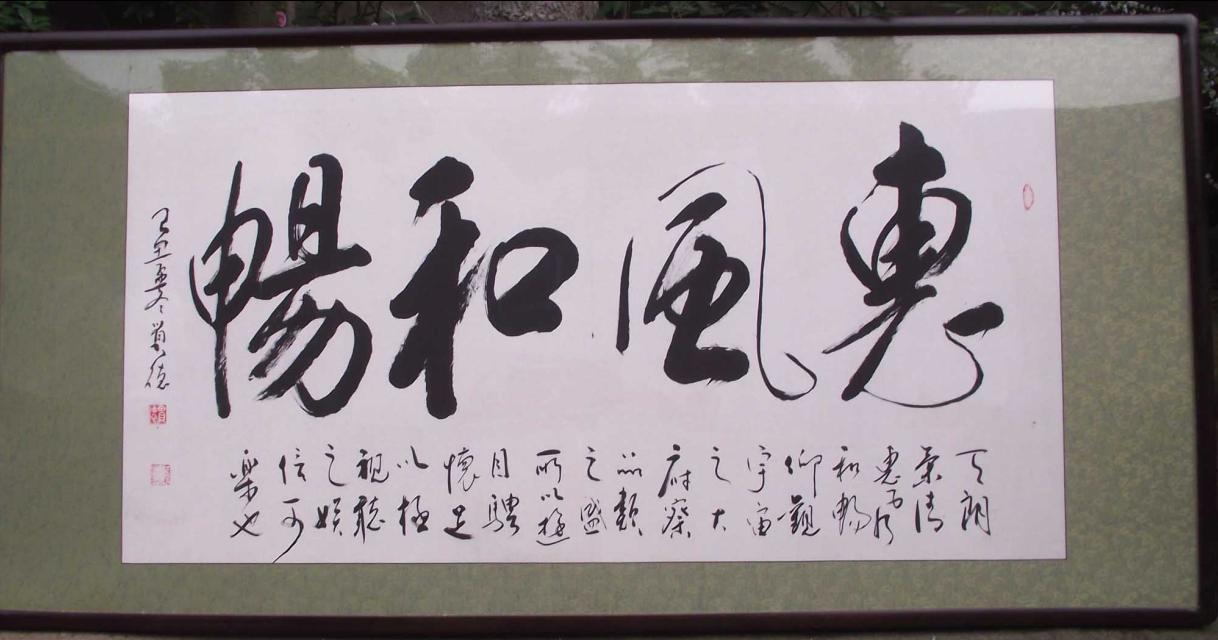 惠風和暢
天朗
氣清
惠風
和暢
仰觀
宇宙
之大
府察
品類
之盛
所以遊
目騁
懷足
以極
視聽
之娛
信可
樂也
己丑孟冬